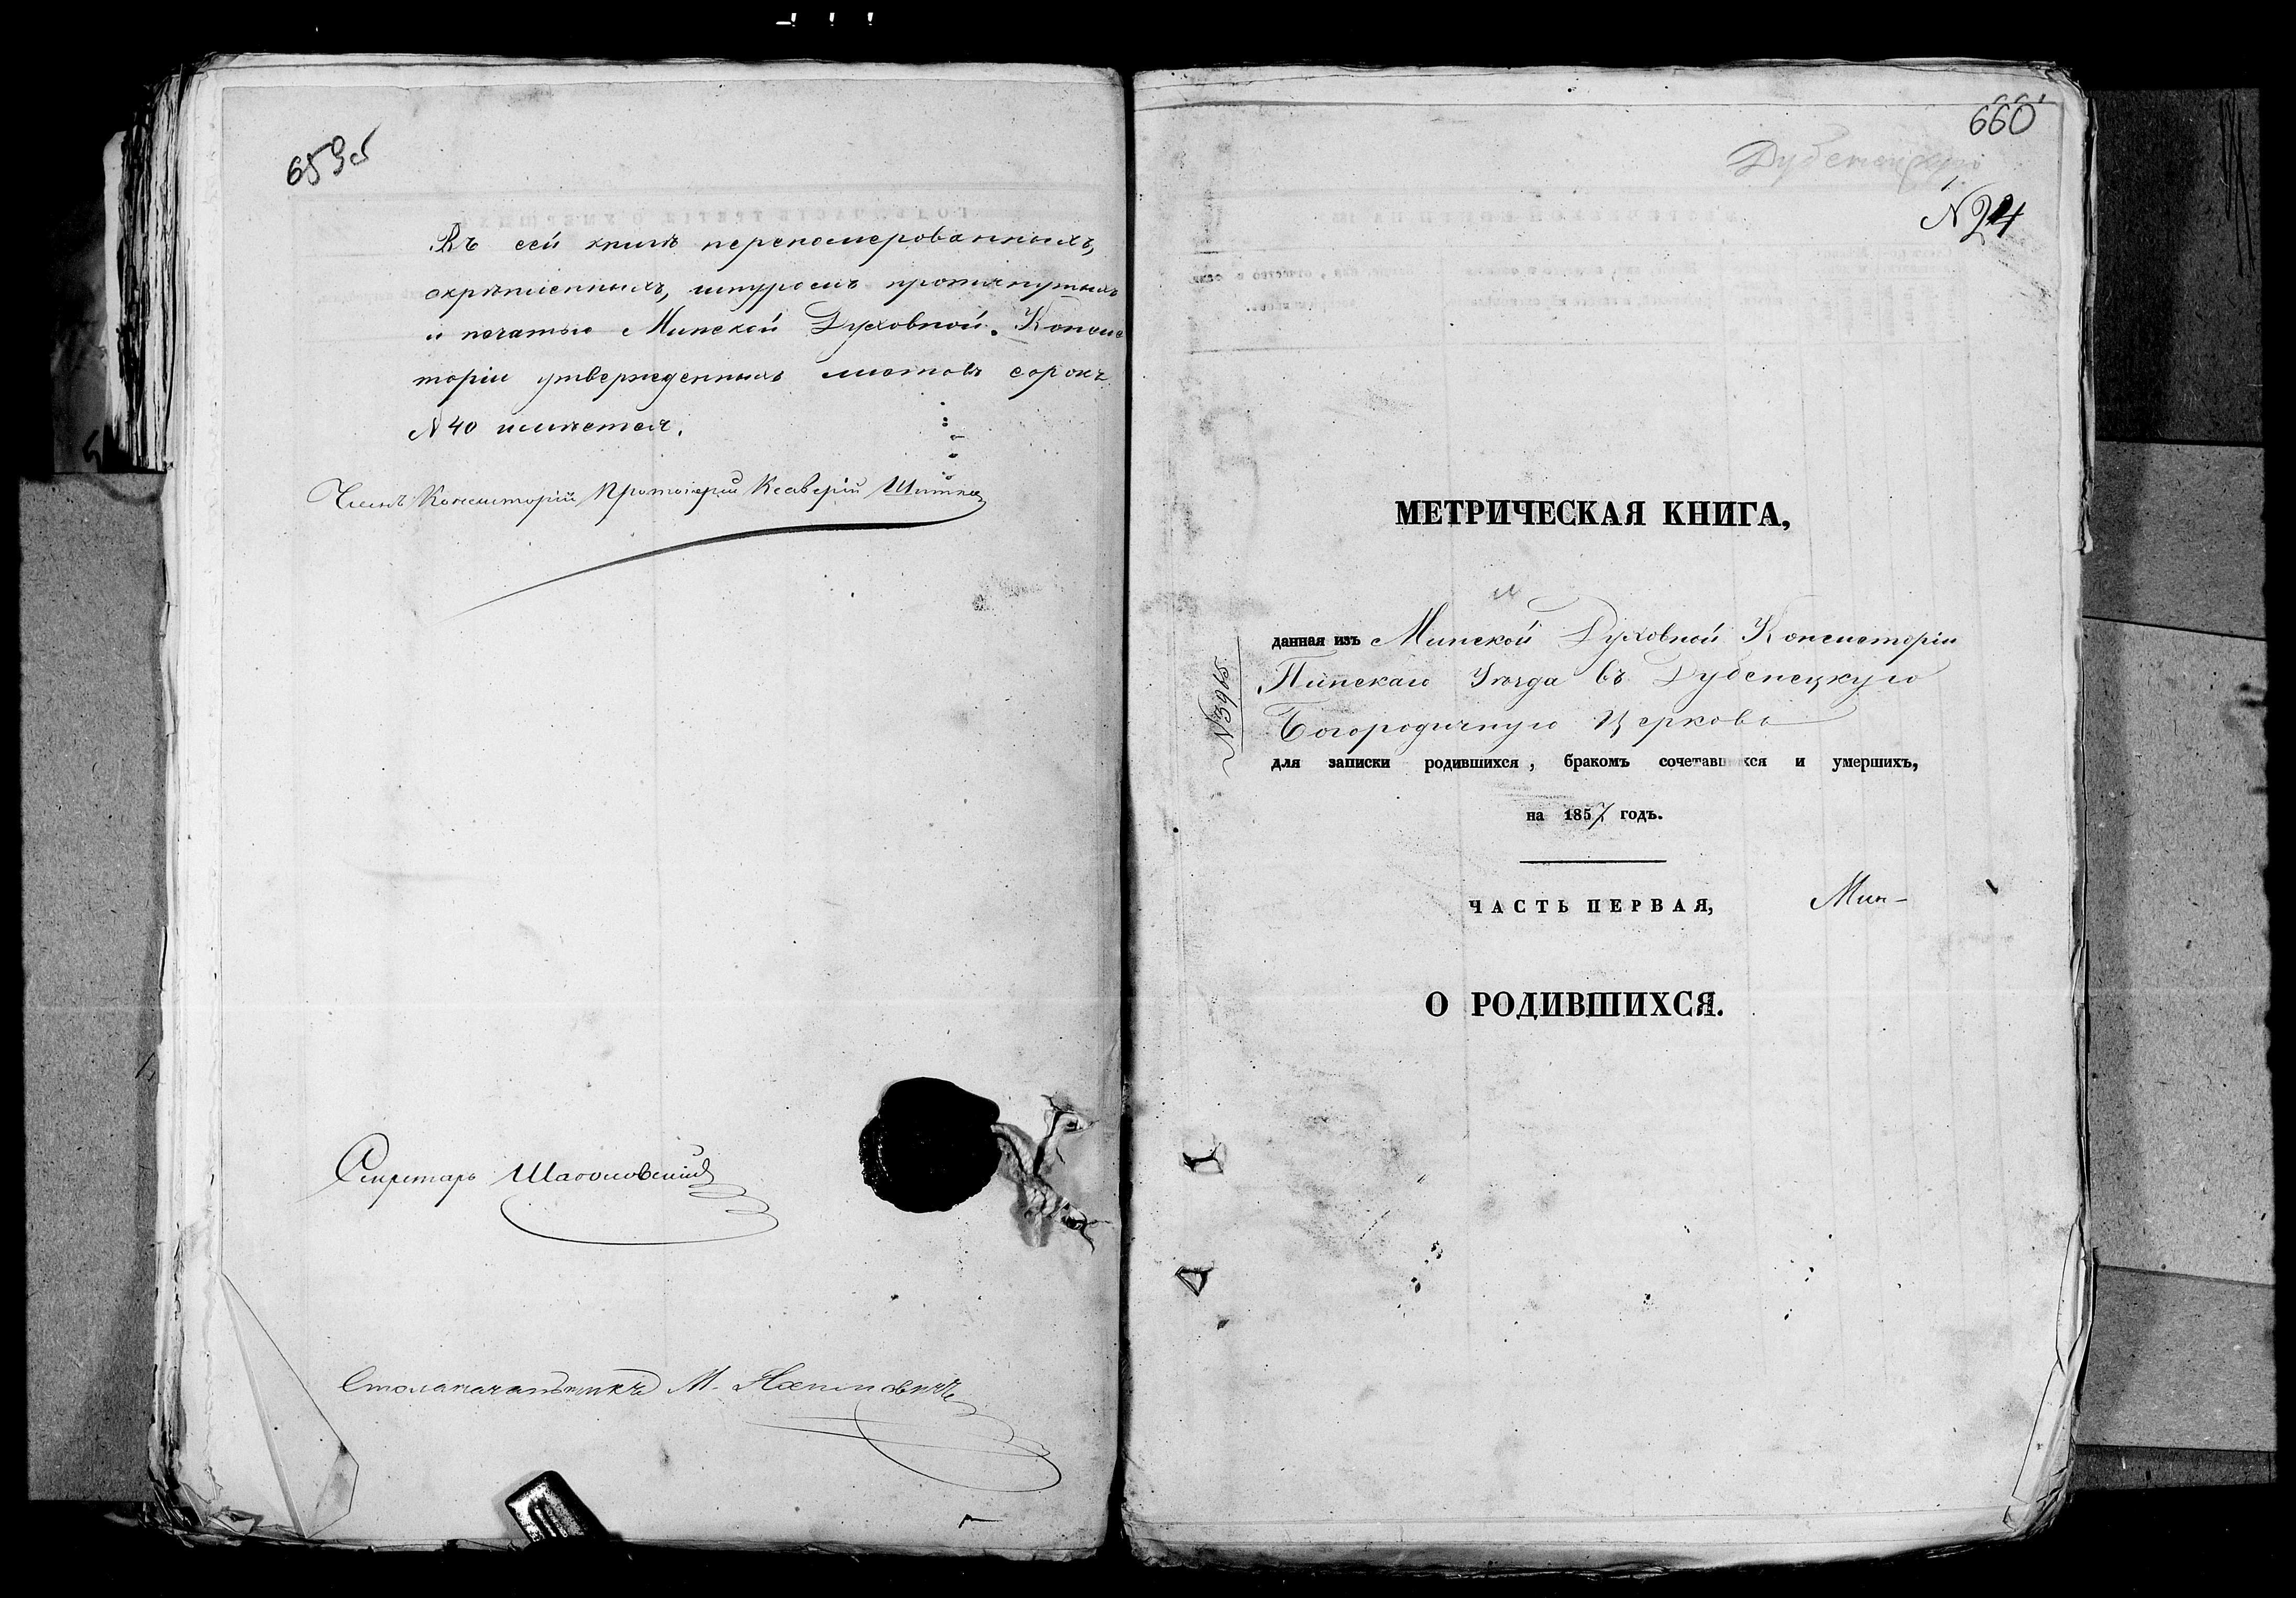 659об
Въ сей книгѣ перепомерованныхъ,
скрѣпленныхъ, шнуромъ протянутыхъ
и печатью Минской Духовной Консис
торіи утвержденныхъ листовъ сорокъ
№ 40 имѣется.
Членъ Консисторіи Протоіерей Ксаверій
Секретарь
Столоначальникъ М.
660
Дубенецкую
№ 24
МЕТРИЧЕСКАЯ КНИГА,
данная изъ Минской Духовной Консисторіи
Пинскаго Уѣзда въ Дубенецкую
Богородичную Церковь
№ 3965
для записки родившихся, бракомъ сочетавшихся и умершихъ,
на 1857 годъ.
ЧАСТЬ ПЕРВАЯ,
Мин-
О РОДИВШИХСЯ.